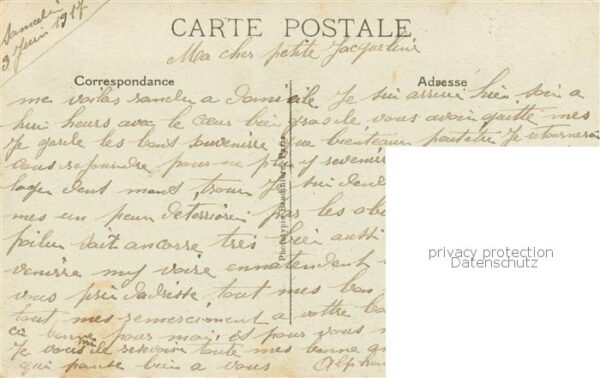 Samedi
3 Juin 1917
CARTE POSTALE
Ma cher petite Jacqueline
Correspondance
Adresse
me voilas rendu a domicile Je sui arrivé hier soir a
huit heurs avec le cœur bien gros de vous avoir quitté mes
Je garde les bons souvenire que bienteau peutaitre Je retournerai
vous rejoindre pour ne plu y revenir
Je sui dend
mes un peux deterriorer par les ob
poilu doit ancorre tres bien aussi
venire my voire ennatendent
vous pri dadresse tout mes bon
tout mes remerciment a vottre bo
si bonne pour moi, et pour vous
Je vous de recevoir toute mes bonne
qui panse bien a vous Alphon
Phototypie Baudinière, Paris
privacy protection
Datenschutz